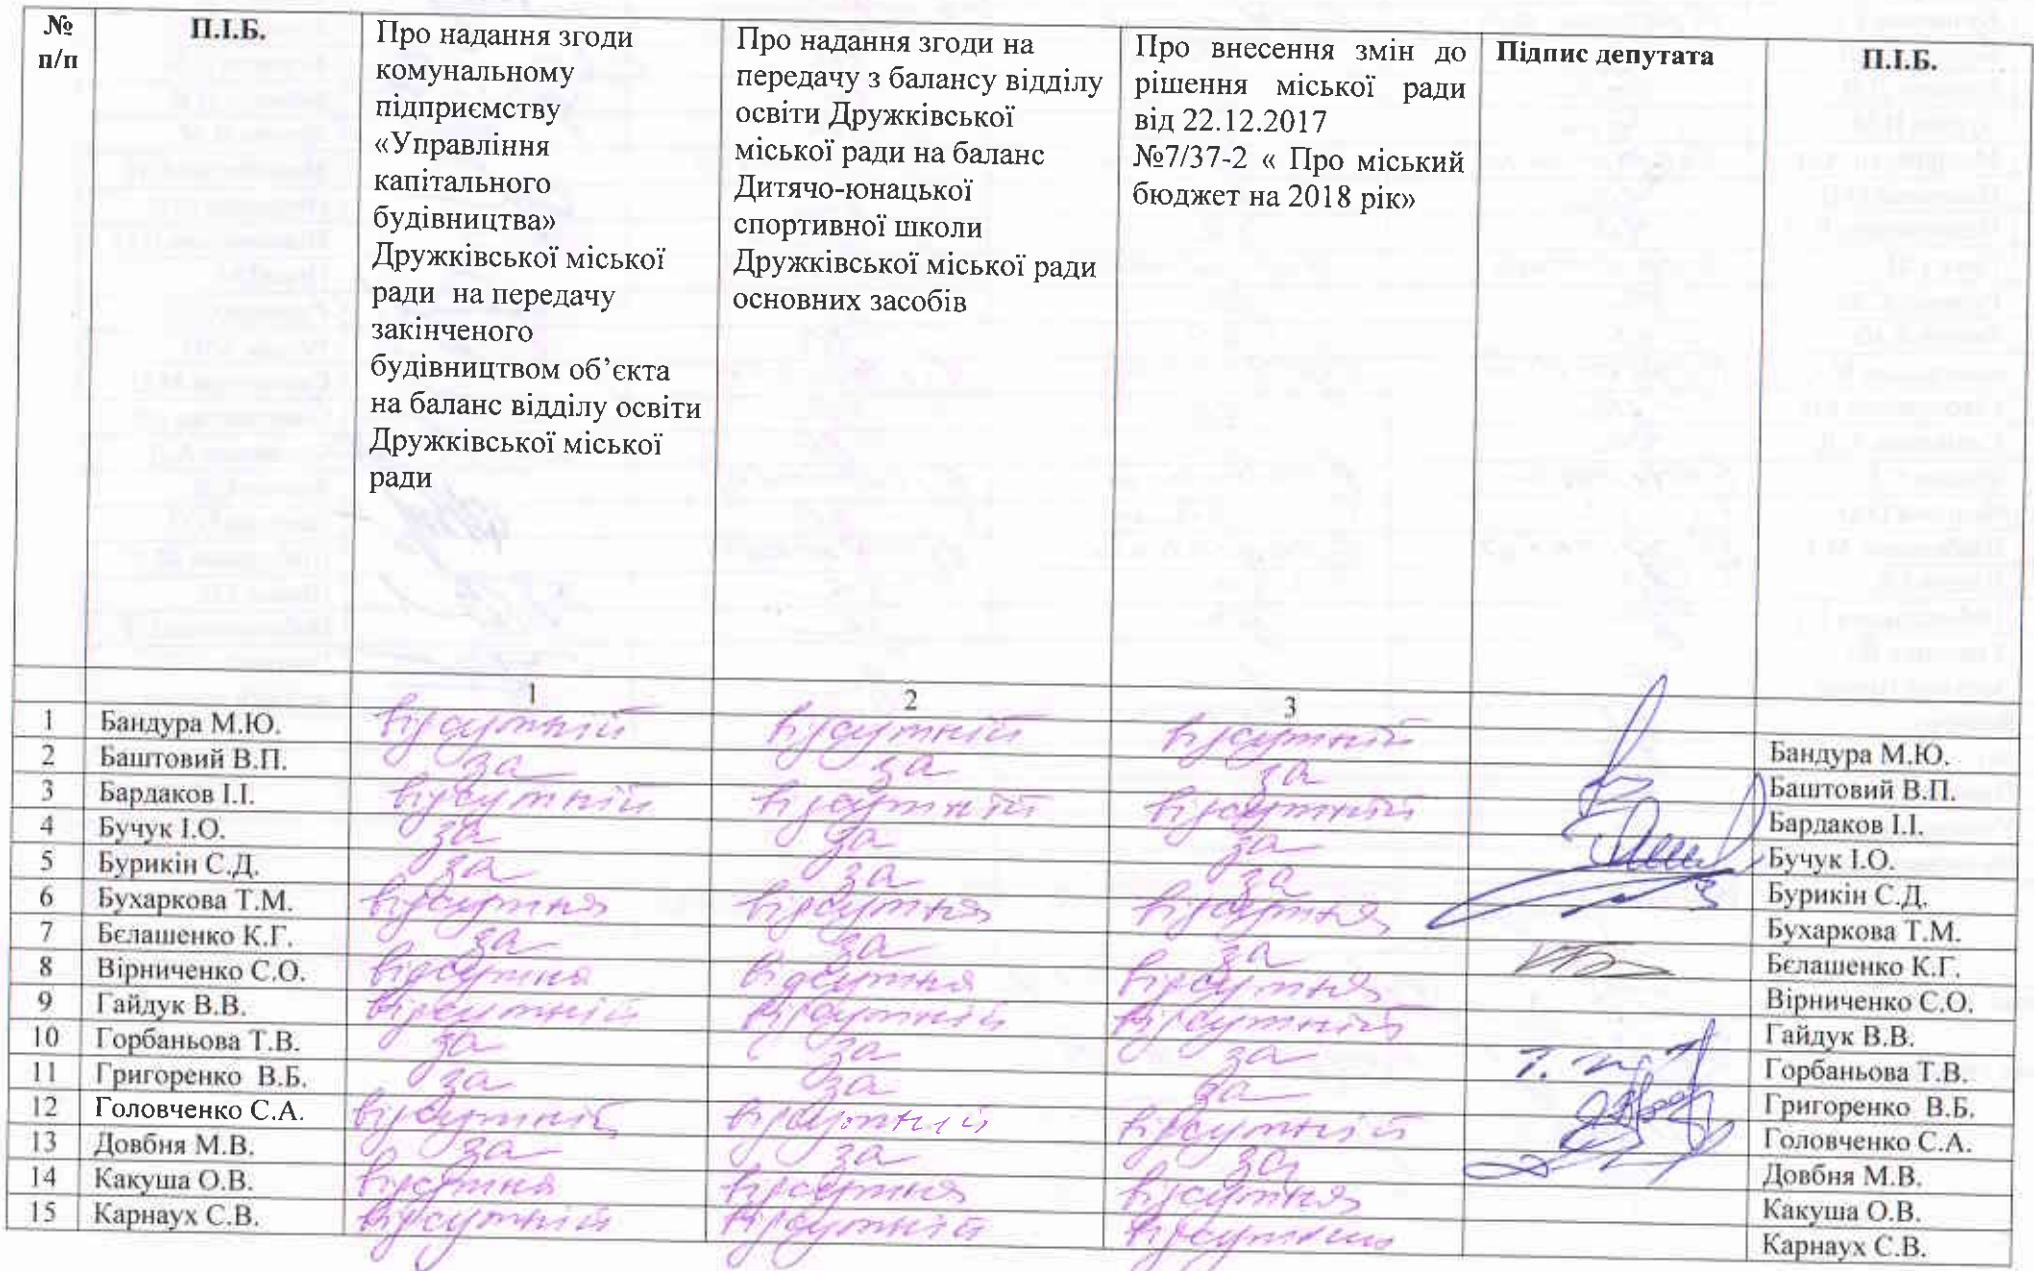 № п/п | П.І.Б. | Про надання згоди комунальному підприємству «Управління капітального будівництва» Дружківської міської ради на передачу закінченого будівництвом об’єкта на баланс відділу освіти Дружківської міської ради | Про надання згоди на передачу з балансу відділу освіти Дружківської міської ради на баланс Дитячо-юнацької спортивної школи Дружківської міської ради основних засобів | Про внесення змін до рішення міської ради від 22.12.2017 №7/37-2 « Про міський бюджет на 2018 рік» | Підпис депутата | П.І.Б.
1 | 2 | 3
1 | Бандура М.Ю. | відсутній | відсутній | відсутній | Бандура М.Ю.
2 | Баштовий В.П. | за | за | за | Баштовий В.П.
3 | Бардаков І.І. | відсутній | відсутній | відсутній | Бардаков І.І.
4 | Бучук І.О. | за | за | за | Бучук І.О.
5 | Бурикін С.Д. | за | за | за | Бурикін С.Д.
6 | Бухаркова Т.М. | відсутня | відсутня | відсутня | Бухаркова Т.М.
7 | Бєлашенко К.Г. | за | за | за | Бєлашенко К.Г.
8 | Вірниченко С.О. | відсутня | відсутня | відсутня | Вірниченко С.О.
9 | Гайдук В.В. | відсутній | відсутній | відсутній | Гайдук В.В.
10 | Горбаньова Т.В. | за | за | за | Горбаньова Т.В.
11 | Григоренко В.Б. | за | за | за | Григоренко В.Б.
12 | Головченко С.А. | відсутній | відсутній | відсутній | Головченко С.А.
13 | Довбня М.В. | за | за | за | Довбня М.В.
14 | Какуша О.В. | відсутня | відсутня | відсутня | Какуша О.В.
15 | Карнаух С.В. | відсутній | відсутній | відсутній | Карнаух С.В.